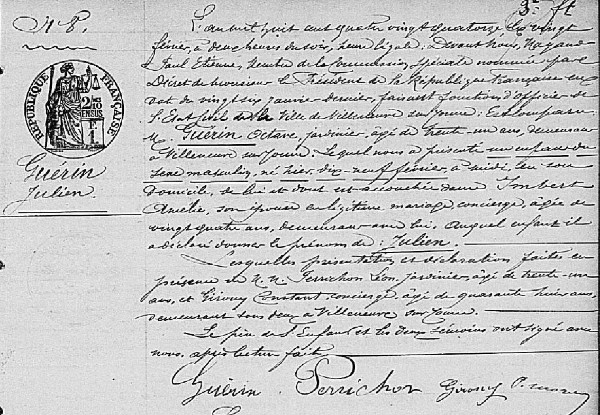 N° 8.
RÉPUBLIQUE FRANÇAISE
Guérin
Julien.
L'an mil huit cent quatre vingt quatorze, le vingt
février, à deux heures du soir, heure légale: Devant Nous,
Paul Etienne, Membre de la Commission Spéciale nommée par
Décret de Monsieur le Président de la République française en
date du vingt six janvier dernier, faisant fonctions d'officier de
l'Etat Civil de la Ville de Villeneuve sur Yonne: Est comparu
M. Guérin Octave, jardinier, âgé de trente-un ans, demeurant
à Villeneuve sur Yonne: Lequel nous a présenté un enfant du
sexe masculin, né hier, dix-neuf février, à midi, en son
domicile, de lui et dont est accouchée dame Imbert
Amélie, son épouse en légitime mariage, concierge, âgée de
vingt quatre ans, demeurant avec lui, Auquel enfant il
a déclaré donner le prénom de: Julien.
Lesquelles présentation et déclaration faites en
présence de M.M. Perrichon Léon, jardinier, âgé de trente-un
ans, et Girony Constant, concierge, âgé de quarante huit ans,
demeurant tous deux à Villeneuve sur Yonne.
Le père de l'Enfant et les deux témoins ont signé avec
nous, après lecture faite.
Guérin Perrichon Girony